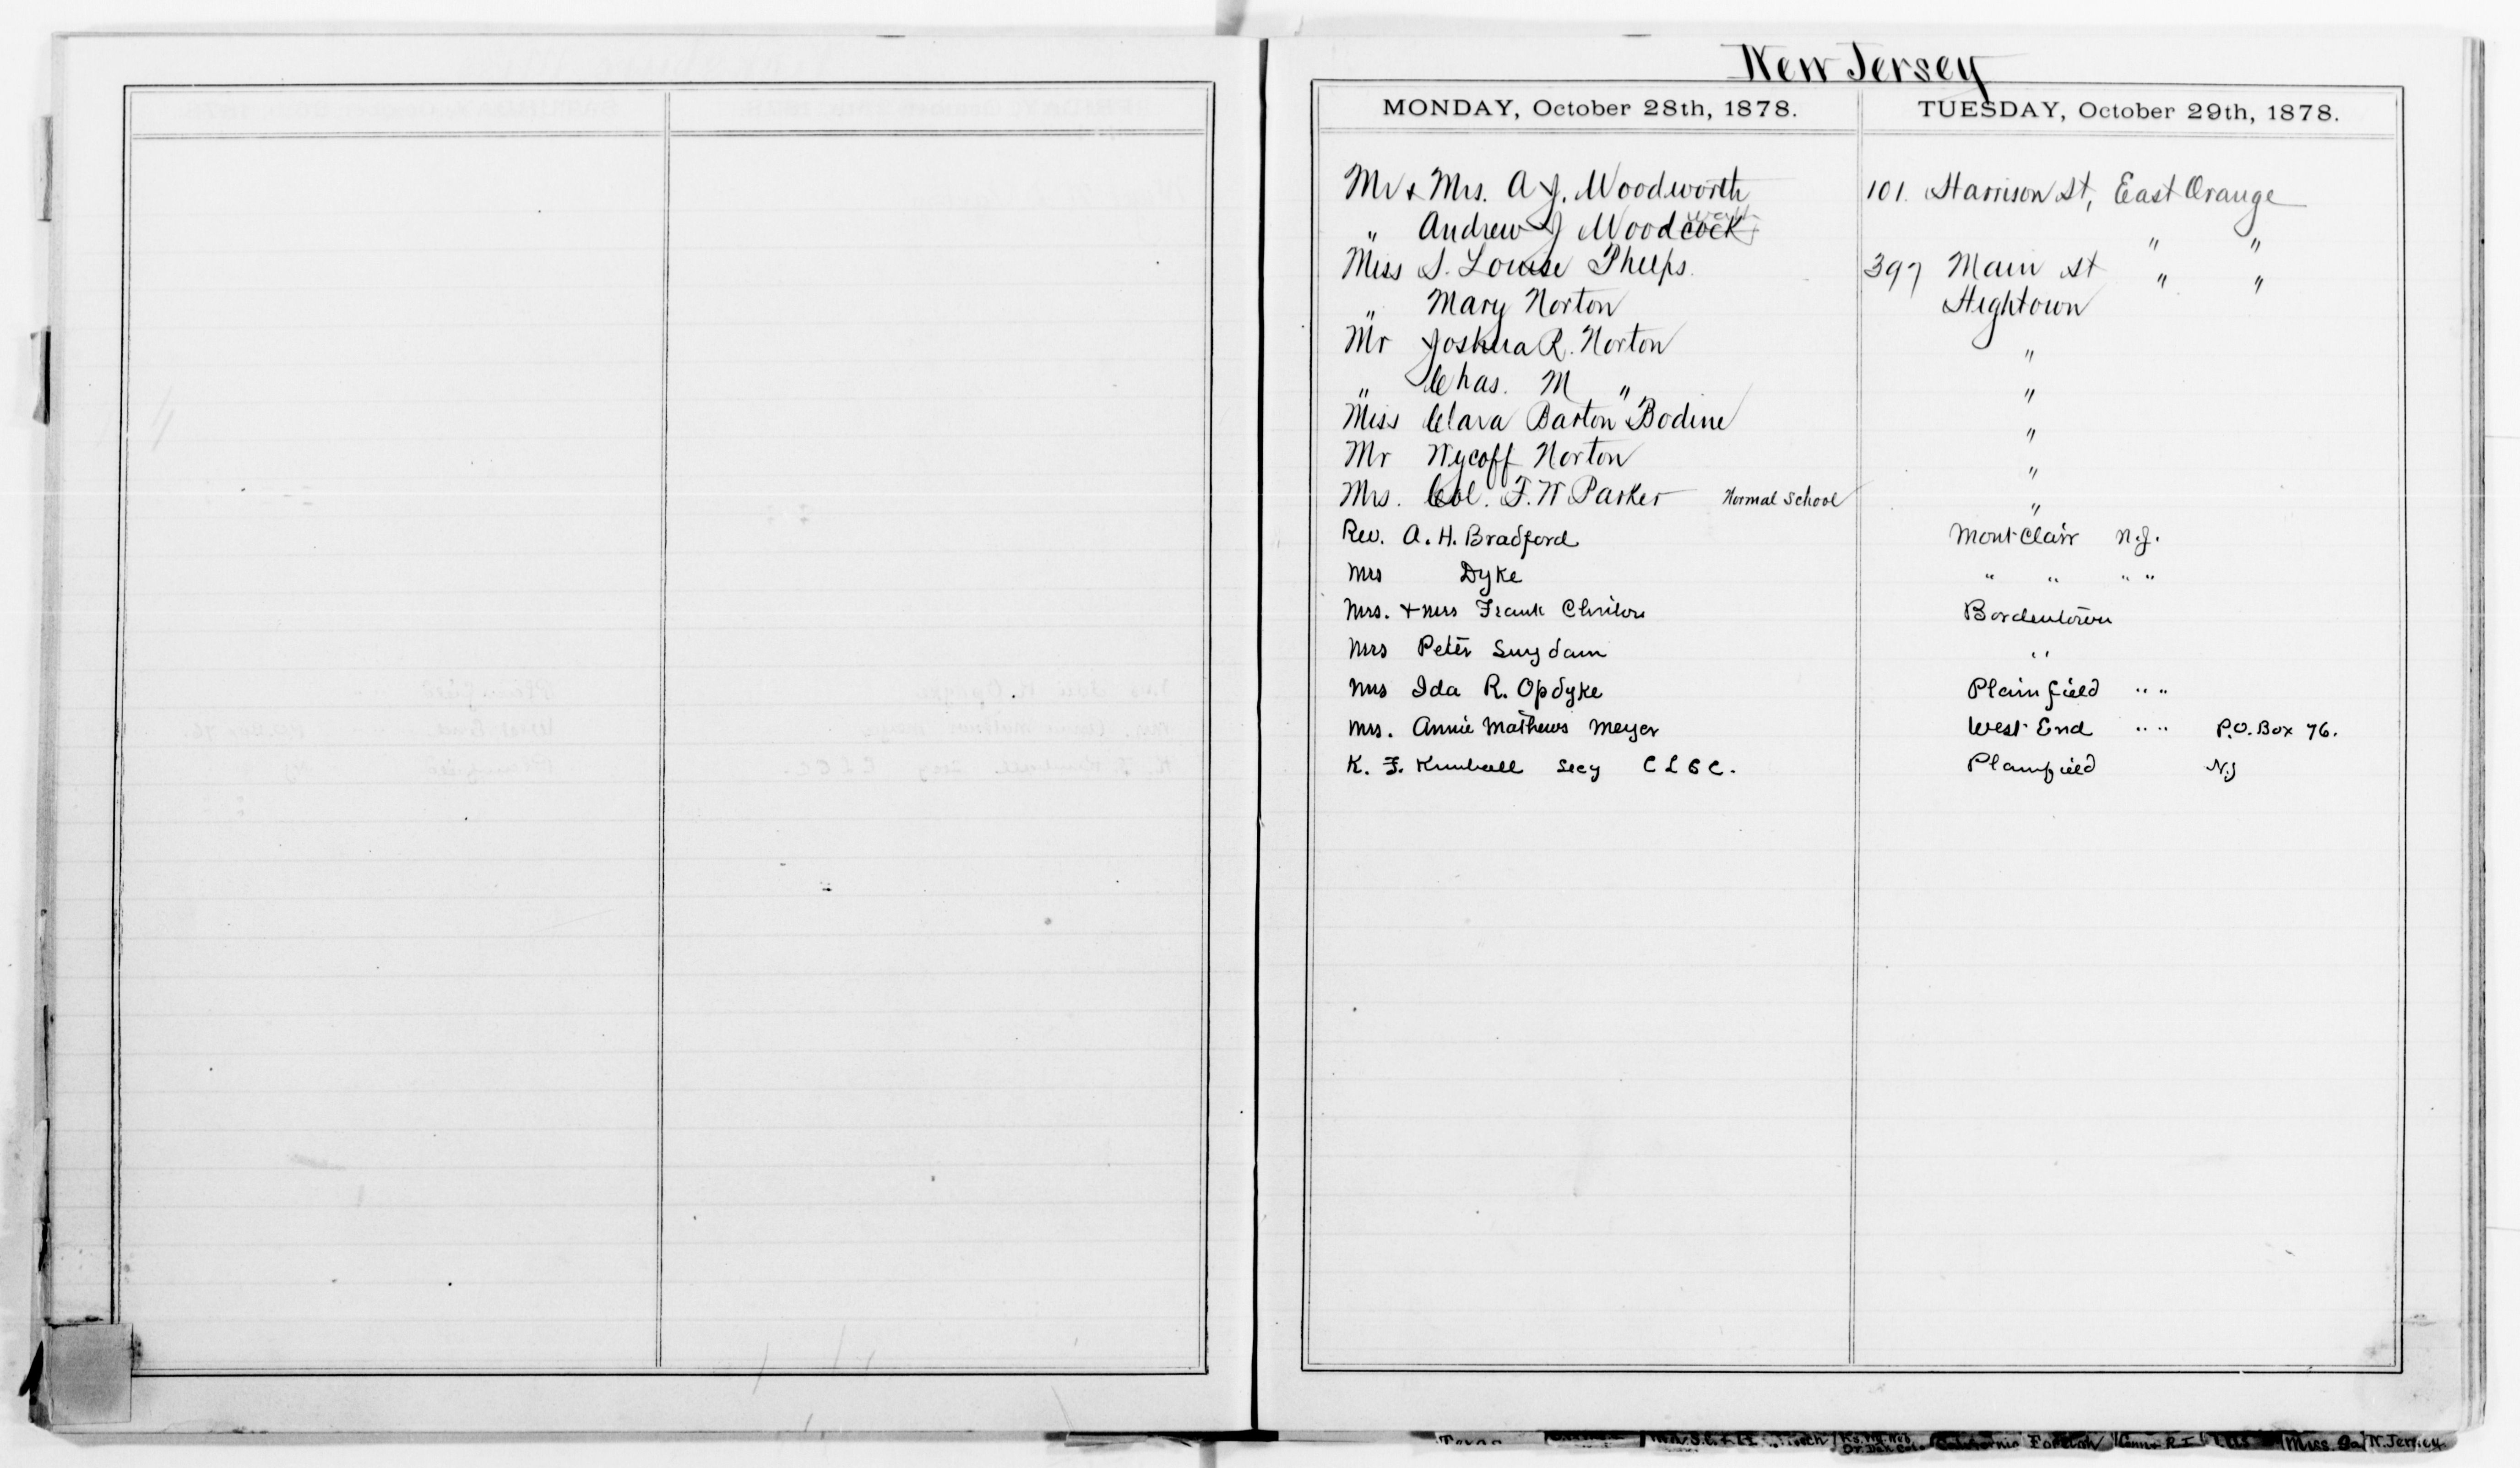 New Jersey
MONDAY, October 28th, 1878. TUESDAY, October 29th, 1878.
Mr & Mrs. A J. Woodworth 101. Harrison St, East Orange
" Andrew J Woodcock " "
Miss S. Louise Phelps. 397 Main St " "
" Mary Norton Hightown
Mr Joshua R. Norton "
" Chas. M " "
Miss Clara Barton Bodine "
Mr Wycoff Norton "
Mrs. Col. F. W Parker Normal School "
Rev. A. H. Bradford Mont-Clair N.J.
Mrs Dyke " " " "
Mrs. + Mrs Frank Bordentown
Mrs Peter Suydam "
Mrs Ida R. Opdyke Plainfield " "
Mrs. Annie Mathews Meyer West End " " P.O. Box 76.
K. F. Kimball Secy C L S C. Plainfield N.J
California Foreign
N. Jersey